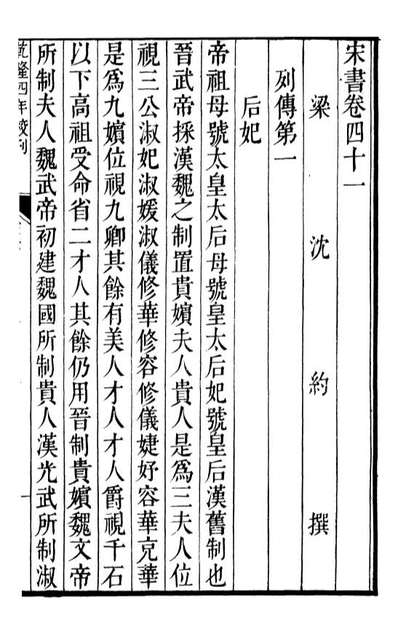 宋書卷四十一
梁沈約撰
列傳第一
后妃
帝祖母號太皇太后母號皇太后妃號皇后漢舊制也
晉武帝採漢魏之制置貴嬪夫人貴人是爲三夫人位
視三公淑妃淑媛淑儀修華修容修儀婕妤容華充華
是爲九嬪位視九卿其餘有美人才人才人爵視千石
以下高祖受命省二才人其餘仍用晉制貴嬪魏文帝
所制夫人魏武帝初建魏國所制貴人漢光武所制淑
乾隆四年校刊